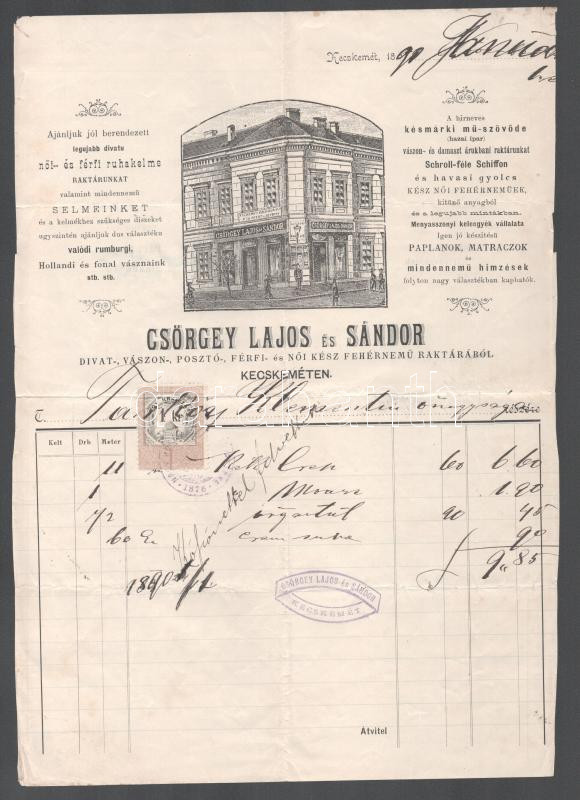 Kecskemét, 1890
Ajánljuk jól berendezett
legujabb divatu
női- és férfi ruhakelme
RAKTÁRUNKAT
valamint mindennemű
SELMEINKET
és a kelmékhez szükséges díszeket
ugyszintén ajánljuk dus választéku
valódi rumburgi,
Hollandi és fonal vásznaink
stb. stb.
CSÖRGEY LAJOS és SÁNDOR
A hírneves
késmárki mű-szövöde
(hazai ipar)
vászon- és damaszt árukbani raktárunkat
Schroll-féle Schiffon
és havasi gyolcs
KÉSZ NŐI FEHÉRNEMŰEK,
kitünő anyagból
és a legujabb mintákban.
Menyasszonyi kelengyék vállalata
Igen jó készitésű
PAPLANOK, MATRACZOK
és
mindennemű himzések
folyton nagy választékban kaphatók.
CSÖRGEY LAJOS ÉS SÁNDOR
DIVAT-, VÁSZON-, POSZTÓ-, FÉRFI- és NŐI KÉSZ FEHÉRNEMŰ RAKTÁRÁBÓL
KECSKEMÉTEN.
T.
Kelt Drb Meter
11 60 6 60
1 1.20
1/2 90 45
60 90
9.85
1890
CSÖRGEY LAJOS és SÁNDOR
KECSKEMÉT
1876
Átvitel